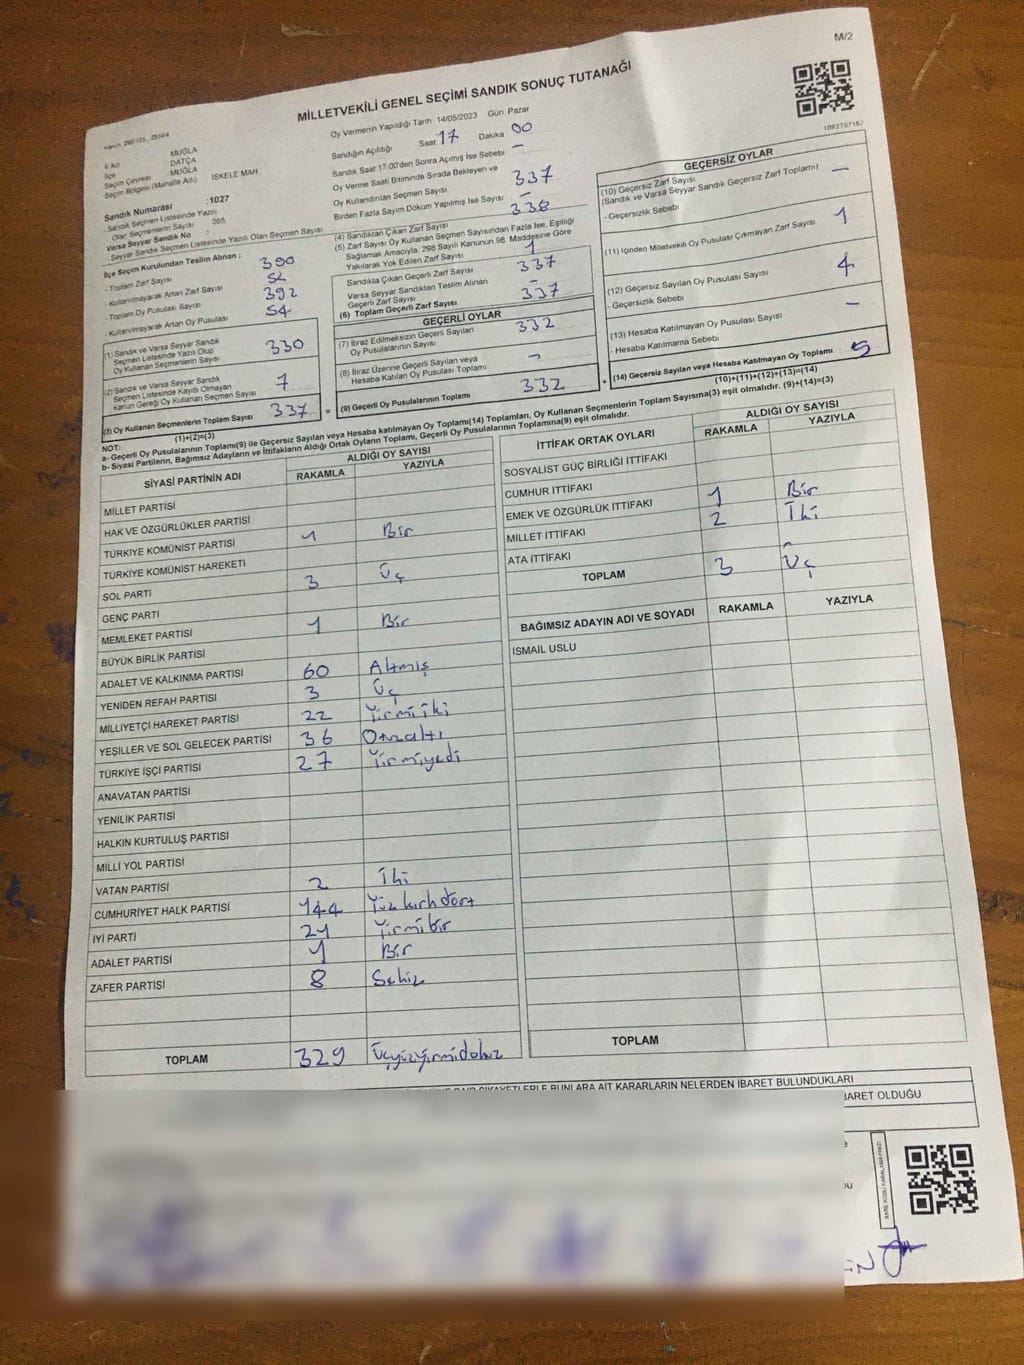 M/2
MİLLETVEKİLİ GENEL SEÇİMİ SANDIK SONUÇ TUTANAĞI
1083757167
Oy Vermenin Yapıldığı Tarih 14/05/2023 Gün Pazar
İl Adı : MUĞLA
İlçe : DATÇA
Seçim Çevresi : MUĞLA
Seçim Bölgesi (Mahalle Adı) : İSKELE MAH
Sandık Numarası : 1027
Sandık Seçmen Listesinde Yazılı
Olan Seçmenlerin Sayısı 365
Varsa Seyyar Sandık No
- Seyyar Sandık Seçmen Listesinde Yazılı Olan Seçmen Sayısı
İlçe Seçim Kurulundan Teslim Alınan ;
- Toplam Zarf Sayısı 390
- Kullanılmayarak Artan Zarf Sayısı
- Toplam Oy Pusulası Sayısı 392
- Kullanılmayarak Artan Oy Pusulası 54
(1) Sandık ve Varsa Seyyar Sandık
Seçmen Listesinde Yazılı Olup
Oy Kullanan Seçmenlerin Sayısı 330
(2) Sandık ve Varsa Seyyar Sandık
Seçmen Listesinde Kayıtlı Olmayan
Kanun Gereği Oy Kullanan Seçmen Sayısı 7
(3) Oy Kullanan Seçmenlerin Toplam Sayısı 337
(1)+(2)=(3)
Sandığın Açıldığı Saat 17 Dakika 00
Sandık Saat 17:00'den Sonra Açılmış İse Sebebi —
Oy Verme Saati Bitiminde Sırada Bekleyen ve
Oy Kullandırılan Seçmen Sayısı 337
Birden Fazla Sayım Döküm Yapılmış İse Sayısı —
(4) Sandıktan Çıkan Zarf Sayısı 338
(5) Zarf Sayısı Oy Kullanan Seçmen Sayısından Fazla İse, Eşitliği
Sağlamak Amacıyla, 298 Sayılı Kanunun 98. Maddesine Göre
Yakılarak Yok Edilen Zarf Sayısı 1
Sandıkta Çıkan Geçerli Zarf Sayısı 337
Varsa Seyyar Sandıktan Teslim Alınan
Geçerli Zarf Sayısı —
(6) Toplam Geçerli Zarf Sayısı 337
GEÇERLİ OYLAR
(7) İtiraz Edilmeksizin Geçerli Sayılan
Oy Pusulalarının Sayısı 332
(8) İtiraz Üzerine Geçerli Sayılan veya
Hesaba Katılan Oy Pusulası Toplamı —
= (9) Geçerli Oy Pusulalarının Toplamı 332 +
GEÇERSİZ OYLAR
(10) Geçersiz Zarf Sayısı
(Sandık ve Varsa Seyyar Sandık Geçersiz Zarf Toplamı) —
- Geçersizlik Sebebi
(11) İçinden Milletvekili Oy Pusulası Çıkmayan Zarf Sayısı 1
(12) Geçersiz Sayılan Oy Pusulası Sayısı 4
- Geçersizlik Sebebi
(13) Hesaba Katılmayan Oy Pusulası Sayısı —
- Hesaba Katılmama Sebebi
(14) Geçersiz Sayılan veya Hesaba Katılmayan Oy Toplamı 5
(10)+(11)+(12)+(13)=(14)
NOT:
a- Geçerli Oy Pusulalarının Toplamı(9) ile Geçersiz Sayılan veya Hesaba katılmayan Oy Toplamı(14) Toplamları, Oy Kullanan Seçmenlerin Toplam Sayısına(3) eşit olmalıdır. (9)+(14)=(3)
b- Siyasi Partilerin, Bağımsız Adayların ve İttifakların Aldığı Ortak Oyların Toplamı, Geçerli Oy Pusulalarının Toplamına(9) eşit olmalıdır.
SİYASİ PARTİNİN ADI ALDIĞI OY SAYISI
RAKAMLA YAZIYLA
MİLLET PARTİSİ
HAK VE ÖZGÜRLÜKLER PARTİSİ
TÜRKİYE KOMÜNİST PARTİSİ 1 Bir
TÜRKİYE KOMÜNİST HAREKETİ
SOL PARTİ 3 Üç
GENÇ PARTİ
MEMLEKET PARTİSİ 1 Bir
BÜYÜK BİRLİK PARTİSİ
ADALET VE KALKINMA PARTİSİ 60 Altmış
YENİDEN REFAH PARTİSİ 3 Üç
MİLLİYETÇİ HAREKET PARTİSİ 22 Yirmiiki
YEŞİLLER VE SOL GELECEK PARTİSİ 36 Otuzaltı
TÜRKİYE İŞÇİ PARTİSİ 27 Yirmiyedi
ANAVATAN PARTİSİ
YENİLİK PARTİSİ
HALKIN KURTULUŞ PARTİSİ
MİLLİ YOL PARTİSİ
VATAN PARTİSİ 2 İki
CUMHURİYET HALK PARTİSİ 144 Yüzkırkdört
İYİ PARTİ 21 Yirmibir
ADALET PARTİSİ 1 Bir
ZAFER PARTİSİ 8 Sekiz
TOPLAM 329 Üçyüzyirmidokuz
İTTİFAK ORTAK OYLARI ALDIĞI OY SAYISI
RAKAMLA YAZIYLA
SOSYALİST GÜÇ BİRLİĞİ İTTİFAKI
CUMHUR İTTİFAKI
EMEK VE ÖZGÜRLÜK İTTİFAKI 1 Bir
MİLLET İTTİFAKI 2 İki
ATA İTTİFAKI
TOPLAM 3 Üç
BAĞIMSIZ ADAYIN ADI VE SOYADI RAKAMLA YAZIYLA
İSMAİL USLU
TOPLAM
BUNLARA AİT KARARLARIN NELERDEN İBARET BULUNDUKLARI
İBARET OLDUĞU